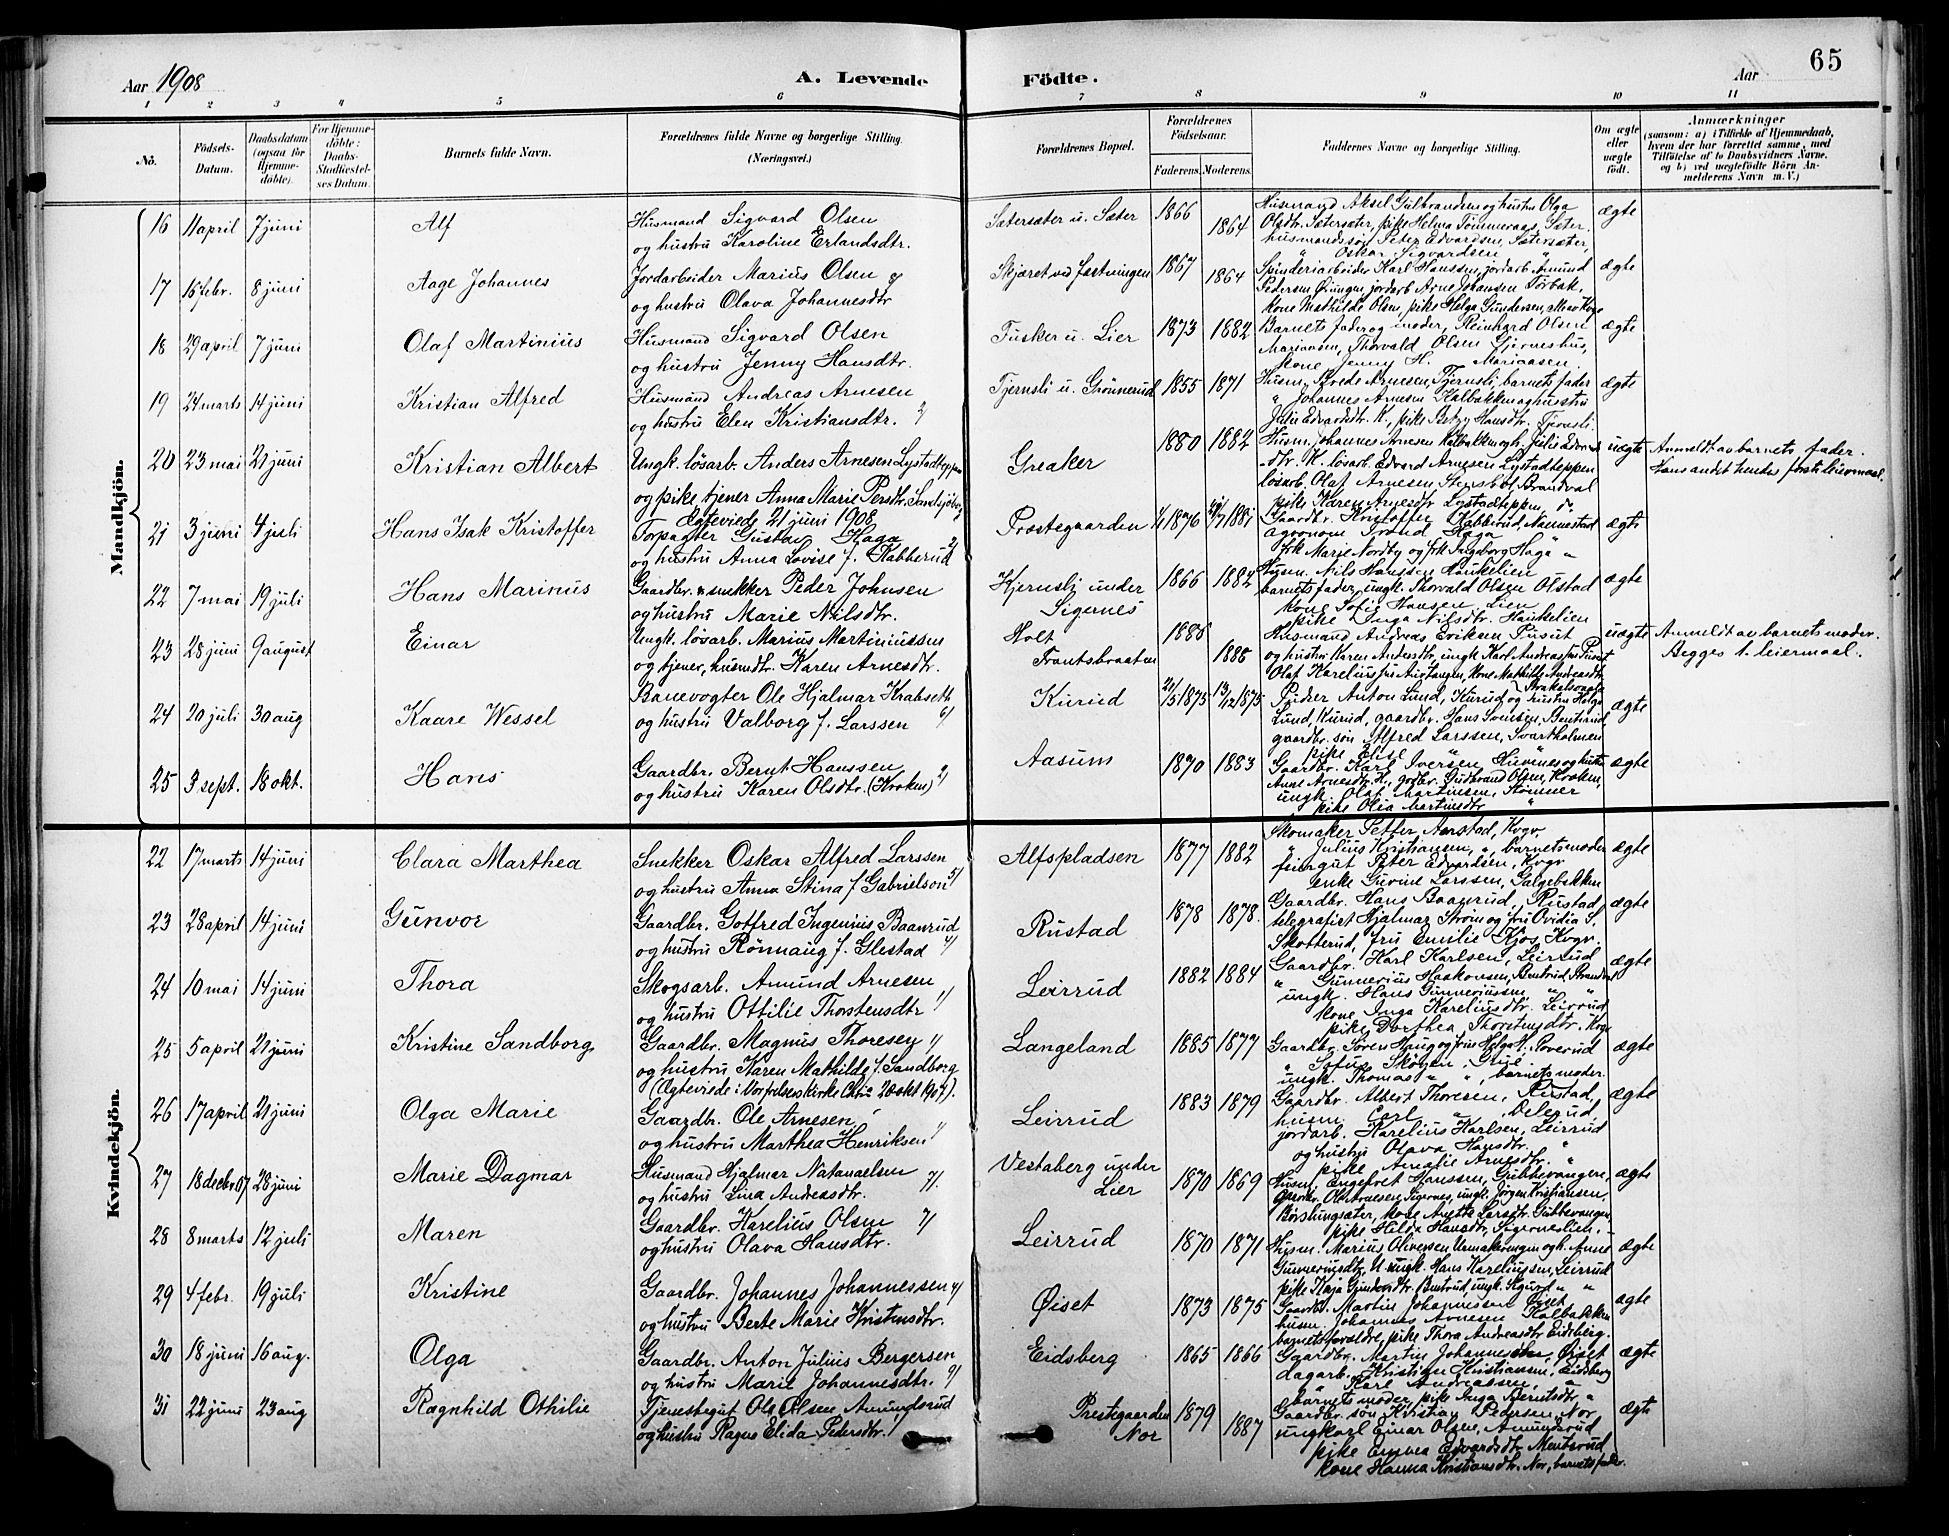 65
Aar 1908
A. Levende Födte.
Aar
1 2 3 4 5 6 7 8 9 10 11
No.
Födsels-Datum.
Daabsdatum (ogsaa for Hjemme-döbte).
For Hjemme-döbte: Daabs-Stadfæstelses Datum.
Barnets fulde Navn.
Forældrenes fulde Navne og borgerlige Stilling. (Næringsvei.)
Forældrenes Bopæl.
Forældrenes Födselsaar.
Faderens. Moderens.
Faddernes Navne og borgerlige Stilling.
Om ægte eller uægte födt.
Anmærkninger
(saasom: a) i Tilfælde af Hjemmedaab, hvem der har forrettet samme, med Tilföielse af to Daabsvidners Navne. og b) ved uægtefödte Börn Anmelderens Navn m. V.)
Mandkjön.
16 11 april 7 juni Alf
Husmand Sigvard Olsen
og hustru Karoline Erlandsdtr.
Sætersæter u. Sæter 1866 1864
Husmand Aksel Gulbrandsen og hustru Olga
Olsdtr. Sætersæter, pike Helma Tömmeraas, Sæter.
husmandssøn Peter Edvardsen, Sætersæter,
" Oskar Sigvardsen "
ægte
17 16 febr. 8 juni Aage Johannes
Jordarbeider Marius Olsen
og hustru Olava Johannesdtr
Skjæret ved fæstningen 1867 1864
Spinderiarbeider Karl Hanssen, jordarb. Amund
Pedersen, jordarb. Arne Johansen
Kone Mathilde Olsen, pike Helga Gundersen
ægte
18 29 april 7 juni Olaf Martinius
Husmand Sigvard Olsen
og hustru Jenny Hansdtr.
Fusker u. Lier 1873 1882
Barnets fader og moder, Reinhard Olsen
Thorvald Olsen
Kone Jenny H.
ægte
19 24 marts 14 juni Kristian Alfred
Husmand Andreas Arnesen
og hustru Elen Kristiansdtr.
Tjernsli u. Grönnerud 1855 1871
Husm. Brede Arnesen, Tjernsli, barnets fader
" Johannes Arnesen Kalbakken og hustru
Julie Edvardsdtr. K., pike Betzy Hansdtr. Tjernsli
ægte
20 23 mai 21 juni Kristian Albert
Ungk. lösarb. Anders Arnesen Lystadteppen
og pike, tjener Anna Marie Persdtr.
Ægteviede 21 juni 1908
Greaker 1880 1882
Husm. Johannes Arnesen Kalbakken og h. Julie Edvards
dtr. K. lösarb. Edvard Arnesen Lystadteppen
lösarb. Olaf Arnesen Brandval
pike Karen Arnesdtr Lystadteppen
uægte
Anmeldt av barnets fader.
Hans andet hendes förste leiermaal.
21 3 juni 4 juli Hans Isak Kristoffer
Forpagter Gustav Haga
og hustru Anna Lovise f. Kabberud
Præstegaarden 1876 1881
Gaardbr. Kristoffer Kabberud, Nannestad
agronom Trond Haga
frk Marie Nordby og frk Ingeborg Haga "
ægte
22 7 mai 19 juli Hans Marinus
Gaardbr. & snekker Peder Johnsen
og hustru Marie Nilsdtr.
Kjernsli under
Sigernes 1866 1882
Husm. Nils Hanssen Haukelien
barnets fader, ungk. Thorvald Olsen Olstad
kone Sofie Hansen Lien
pike Inga Nilsdtr. Haukelien
ægte
23 28 juni 9 august Einar
Ungk. lösarb. Marius Martiniussen
og tjener, husmdtr. Karen Arnesdtr.
Holt
Frantsbraaten 1886 1888
Husmand Andreas Eriksen Pusut
og hustru Karen Andersdtr, ungk. Karl Andreassen Pusut
uægte
Anmeldt av barnets moder.
Begges 1. leiermaal.
24 20 juli 30 aug Kaare Wessel
Banevogter Ole Hjalmar Krabseth
og hustru Valborg f. Larssen
Kurud 21/5 1875 13/12 1875
Anton Lund, Kurud og hustru Helga
Lund, Kurud, gaardbr. Hans Svensen, Bentsrud
gaardbr. sön Alfred Larssen, Svartholmen
pike Else
ægte
25 3 sept. 18 okt. Hans
Gaardbr. Bernt Hanssen
og hustru Karen Olsdtr. (Kroken)
Aasum 1870 1883
Gaardbr. Karl Iversen, og hustru
Anne Arnesdtr. H., gdbr. Gudbrand Olsen, Kroken,
ungk. Olaf Martinsen, Stömner
pike Olia Martinsdtr "
ægte
Kvindekjön.
22 17 marts 14 juni Clara Marthea
Snekker Oskar Alfred Larssen
og hustru Anna Stina f. Gabrielson
Alfspladsen 1877 1882
Skomaker Petter Aarstad, Kvgr
" Julius Kristiansen, ", barnets moder
feiergut Peter Edvardsen, Kvgr
enke Gurine Larssen, Galgebakken
ægte
23 28 april 14 juni Gunvor
Gaardbr. Gotfred Ingenius Baanrud
og hustru Rönnaug f. Glestad
Rustad 1878 1878.
Gaardbr. Hans Baanrud, Rustad,
telegrafist Hjalmar Ström og fru Ovidia S.
Skotterud, fru Emilie Kjos, Kvgr.
ægte
24 10 mai 14 juni Thora
Skogsarb. Amund Arnesen
og hustru Ottilie Thorstensdtr
Leirrud 1882 1884
Gaardbr. Karl Karlsen, Leirrud
" Gunnerius Haakonsen, Bentsrud, Brandval
ungk. Hans Gunneriussen, " "
kone Inga Kareliusdtr. Leirrud
pike Dorthea Thorstensdtr. Kvgr
ægte
25 5 april 21 juni Kristine Sandborg
Gaardbr. Magnus Thoresen
og hustru Karen Mathilde f. Sandborg
(Ægteviede i Vor frelsers kirke Chra 20 okt 1907).
Langeland 1885 1877
Gaardbr. Sören Haug og frue Helga H., Roverud
" Sofus Skögen, Grue
ungk. Thomas " ", barnets moder.
ægte
26 17 april 21 juni Olga Marie
Gaardbr. Ole Arnesen
og hustru Marthea Henriksen
Leirrud 1883 1879
Gaardbr. Albert Thoresen, Rustad,
husm. Carl
jordarb. Karelius Karlsen, Leirrud
og hustru Olava Hansdtr. "
pike Amalie Arnesdtr. "
ægte
27 18 decbr. 07 28 juni Marie Dagmar
Husmand Hjalmar Natanaelsen
og hustru Lina Andreasdtr.
Vestaberg under
Lier 1870 1869
Husm. Engefret Hanssen, Gubbevangen,
ungk. Jörgen Kristiansen,
Börslungsæter, kone Anette Larsdtr. Gubbevangen
pike Hilda Hansdtr, Sigerneslien
ægte
28 8 marts 12 juli Maren
Gaardbr. Karelius Olsen
og hustru Olava Hansdtr.
Leirrud 1870 1871
Husm. Marius Oliversen Urmakerengen og h. Anne
Gunneriusdtr. U. ungk. Hans Kareliussen, Leirrud
pike Kaja Gundersdtr. Bentsrud, ungk. Sigurd " "
ægte
29 4 febr. 19 juli Kristine
Gaardbr. Johannes Johannessen
og hustru Berte Marie Kristensdtr.
Øiset 1873 1875
Gaardbr. Martin Johannessen Øiset
husm. Johannes Arnesen Kalbakken
barnets forældre, pike Thora Andreasdtr Eidsberg.
ægte
30 18 juni 16 aug. Olga
Gaardbr. Anton Julius Bergersen
og hustru Marie Johannesdtr.
Eidsberg 1865 1866
Gaardbr. Martin Johannessen, Øiset
dagarb. Kristian Kristiansen, Eidsberg
" Karl Andreassen, "
barnets moder, pike Inga Berntsdtr "
ægte
31 22 juni 23 aug Ragnhild Othilie
Tjenestegut Ole Olsen Amundsrud
og hustru Ragna Elida Pedersdtr.
Prestegaarden
Nor 1879 1887
Gaardbr. sön Kristian Pedersen, Nor
ungkarl Einar Olsen, Amundsrud
pike Emma Edvardsdtr. Mentsrud
kone Hanna Kristiansdtr. Nor, barnets fader.
ægte